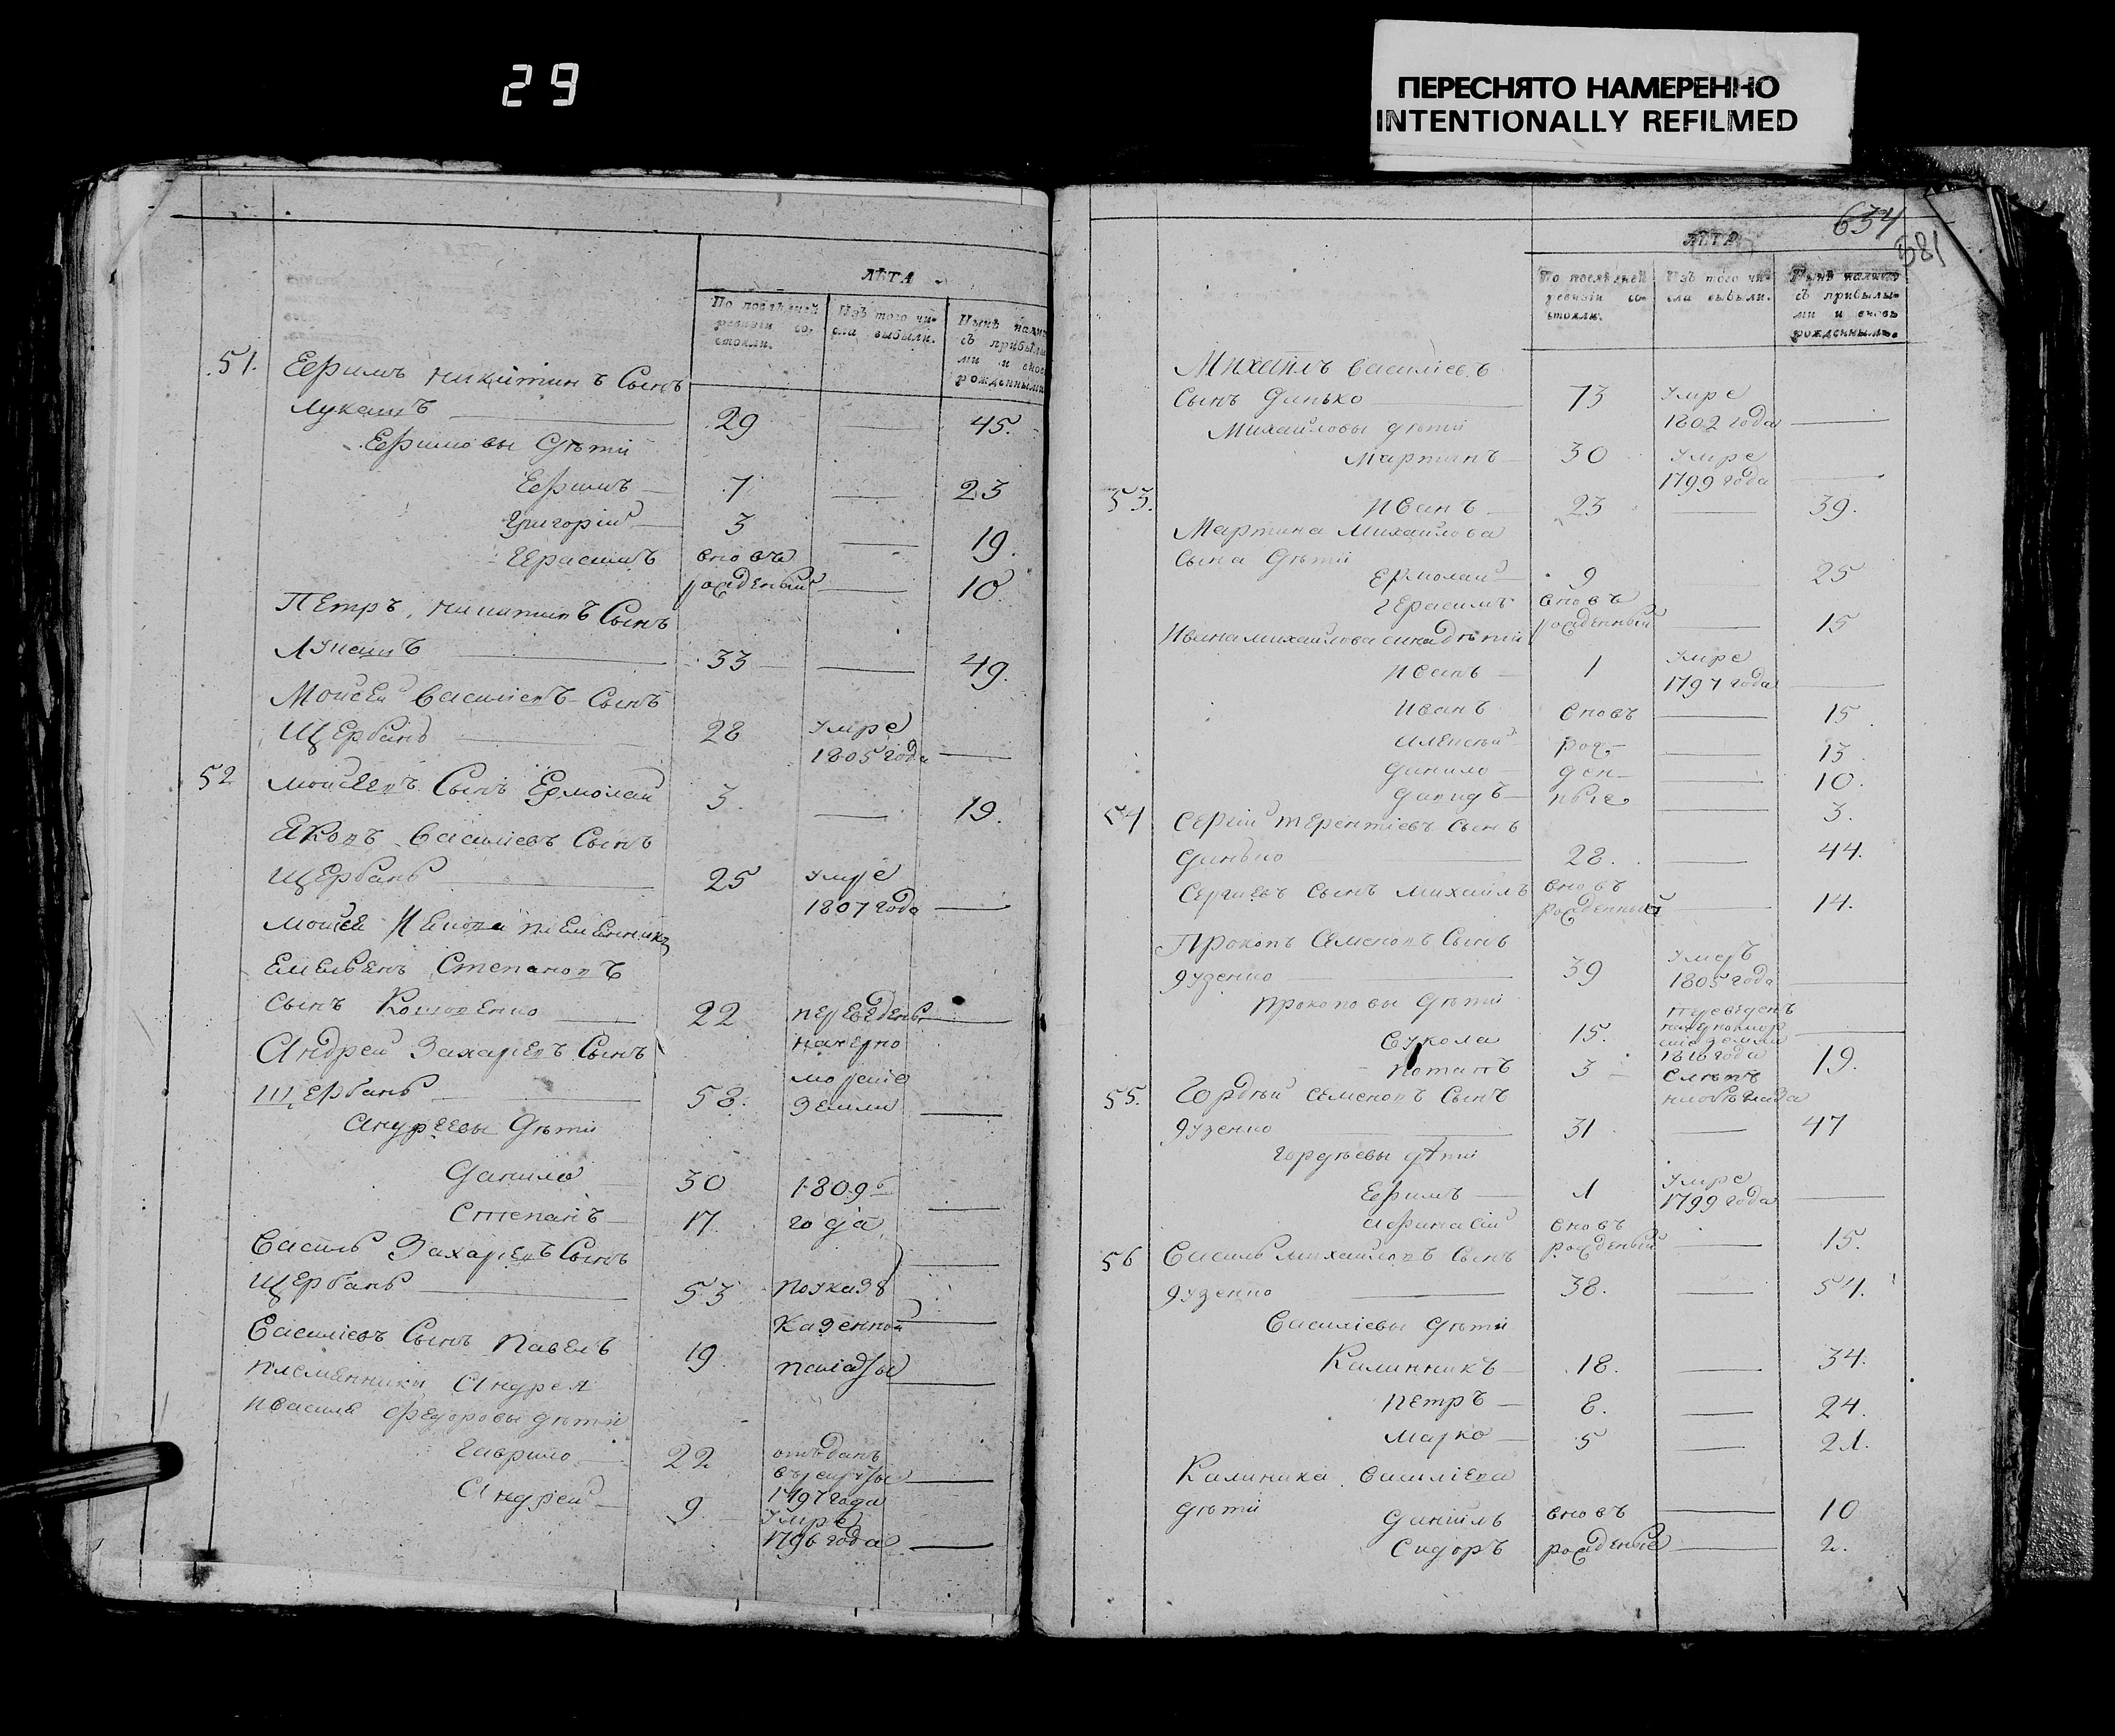 29
ПЕРЕСНЯТО НАМЕРЕННО
INTENTIONALLY REFILMED
ЛѢТА
По послѣдней ревизіи состояли.
Изъ того числа выбыли.
51. Ефимъ Никитинъ Сынъ
Лукашъ 29 — 45.
Ефимовы дѣти
Ефимъ 7 — 23
Григорій 3 — 19.
Герасимъ вновь
рожденый — 10
Петръ Никитинъ Сынъ
Лукашъ 33 — 49.
Мойсей Василіевъ Сынъ
Щербань 28 умре
1805 года —
52 Мойсеевъ Сынъ Ермолай 3 — 19.
Яковъ Василіевъ Сынъ
Щербань 25 умре
1807 года —
Мойсея
Степановъ
сынъ 22 переведены —
Андрей Захаріевъ Сынъ на Черно
морскіе
Щербань 58. земли —
Андреевы дѣти
Данило 30 1809го —
Степанъ 17 года —
Василь Захаріевъ Сынъ
Щербань 53 по указу —
Казенной
Василіевъ Сынъ Павелъ 19 палаты —
племянники Андрея
и Василя Федоровы дѣти
Гаврило 22 отъданъ
в рекруты —
1797 года
Андрей 9 умре
1796 года —
634
381
ЛѢТА
По послѣдней ревизіи состояли.
Изъ того числа выбыли.
Нынѣ налицо съ прибылыми и вновь рожденными.
Михайлъ Василіевъ
Сынъ Данько 73 умре
1802 года —
Михайловы дѣти
Мартинъ 30 умре
1799 года —
53. Иванъ 23 — 39.
Мартина Михайлова
Сына дѣти
Ермолай 9 — 25
Герасимъ вновь
рожденный — 15
Ивана Михайлова сина дѣти
Иванъ 1 умре
1797 года —
Иванъ вновь — 15
Алексѣй рож — 13
Данило ден — 10.
Давидъ ные — 3.
54 Сергій Терентіевъ Сынъ
Данько 28. — 44.
Сергіевъ сынъ Михайлъ вновь
рожденный — 14.
Прокопъ Семеновъ Сынъ
Дузенко 39 умеръ
1805 года —
Прокоповы дѣти
Сукола 15. переведенъ
на черномор
скіе земли
1810 года —
Потапъ 3 слѣпъ 19.
55. Гордѣй Семеновъ Сынъ
Дузенко 31 — 47
Гордѣевы дѣти
Ефимъ 1 умре
1799 года —
Афанасій вновь
рожденый — 15.
56 Василь Михайловъ Сынъ
Дузенко 38. — 54.
Василіевы дѣти
Калинникъ 18. — 34.
Петръ 8. — 24.
Марко 5 — 21.
Калиника Василіева
дѣти Даніилъ вновь — 10
Сидоръ рожденые — 2.